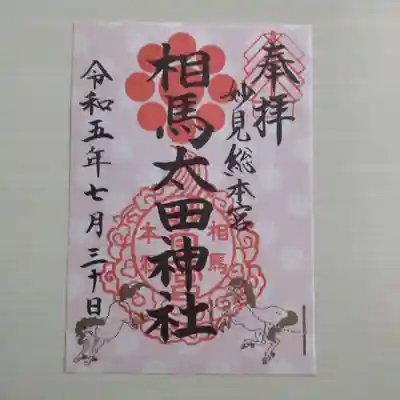 奉拝
妙見総本宮
相馬太田神社
令和五年七月三十日
相馬